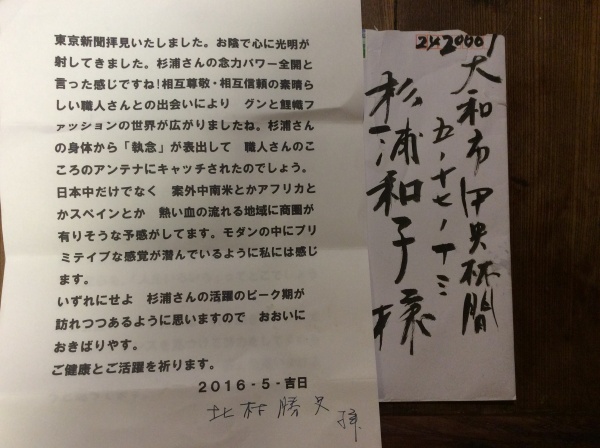 東京新聞拝見いたしました。お陰で心に光明が
射してきました。杉浦さんの念力パワー全開と
言った感じですね!相互尊敬・相互信頼の素晴ら
しい職人さんとの出会いにより　グンと鯉幟フ
ァッションの世界が広がりましたね。杉浦さん
の身体から「執念」が表出して　職人さんのこ
ころのアンテナにキャッチされたのでしょう。
日本中だけでなく　案外中南米とかアフリカと
かスペインとか　熱い血の流れる地域に商圏が
有りそうな予感がしてます。モダンの中にプリ
ミテイブな感覚が潜んでいるように私には感じ
ます。
いずれにせよ　杉浦さんの活躍のピーク期が
訪れつつあるように思いますので　おおいに
おきばりやす。
ご健康とご活躍を祈ります。
2016-5-吉日
北村勝史
大和市中央林間
五ー十七ー十三
杉浦和子様